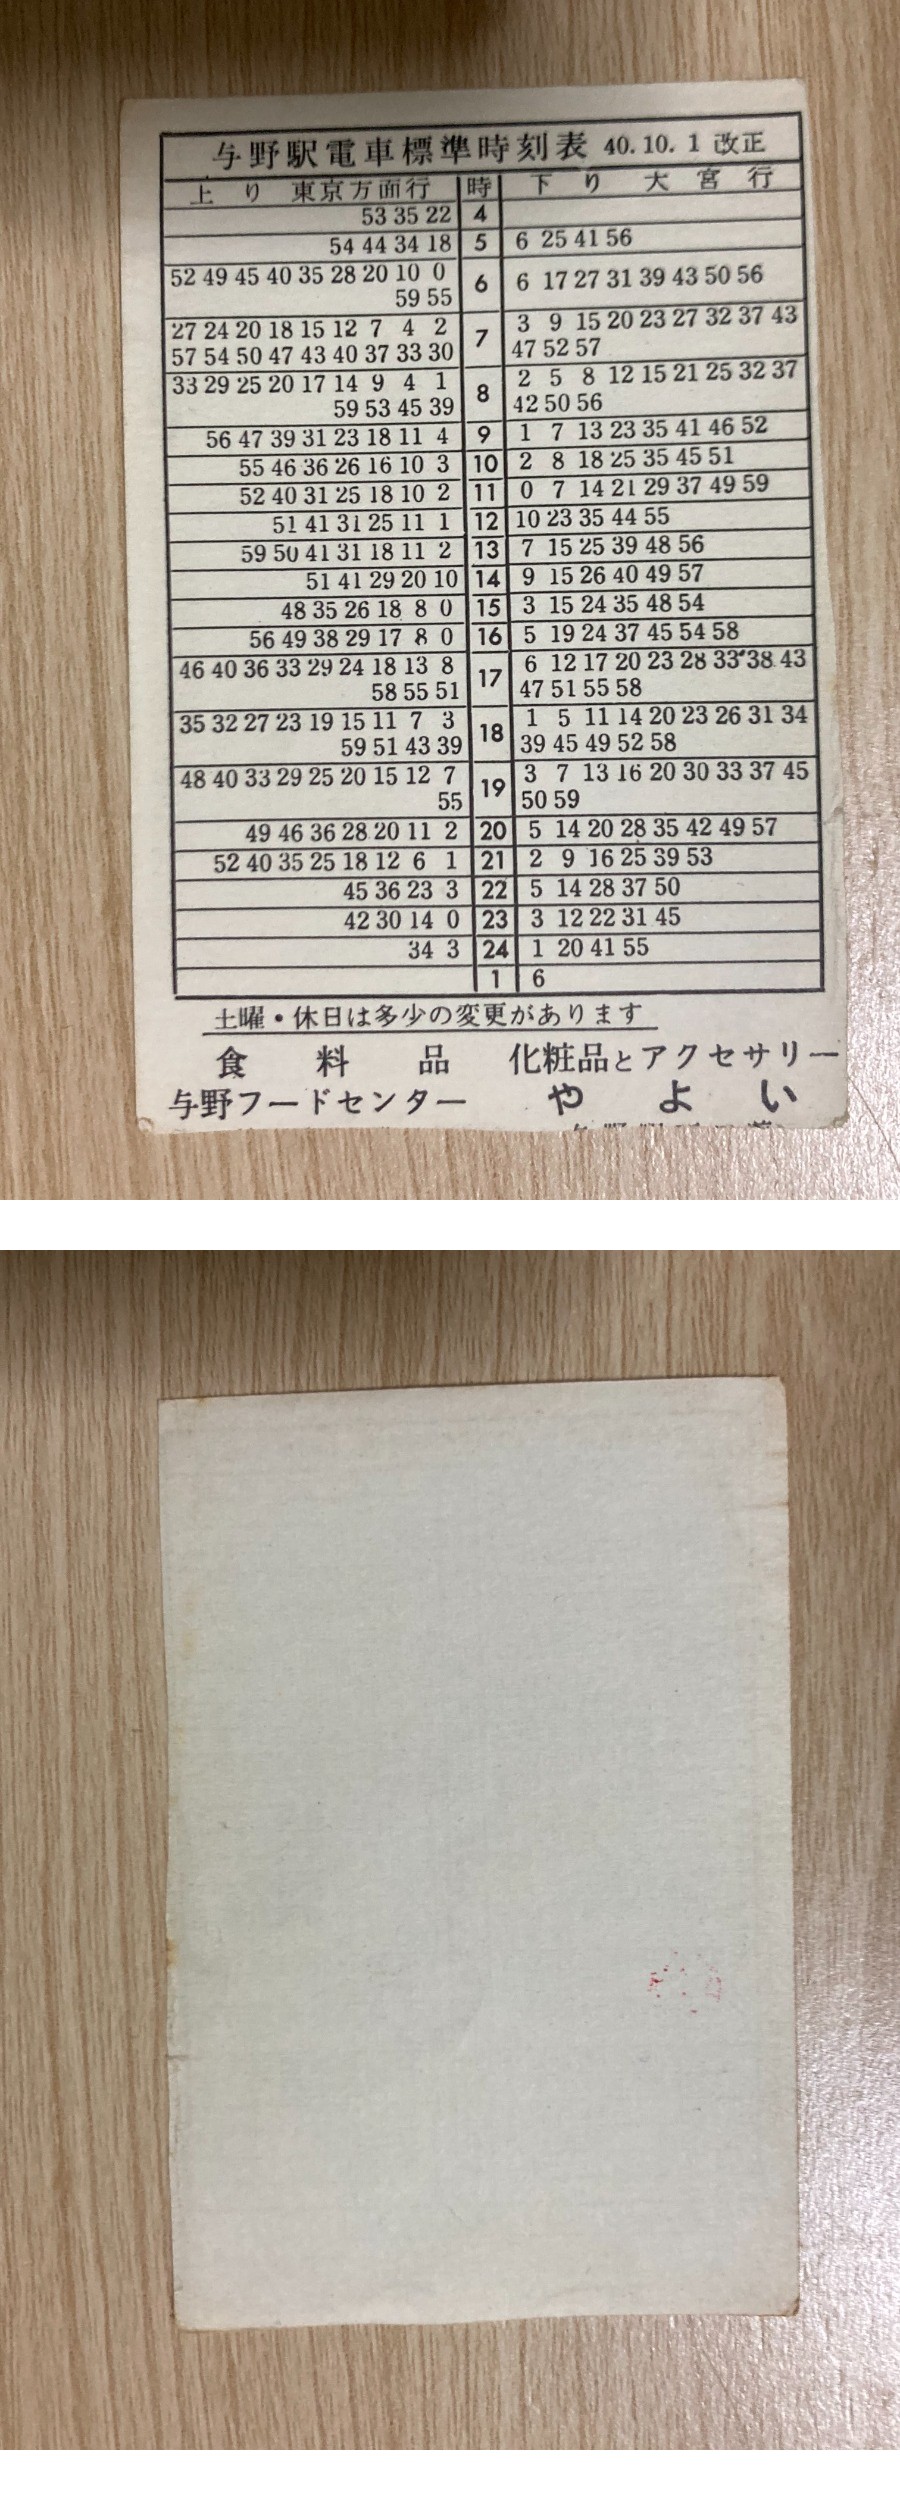 与野駅電車標準時刻表 40.10.1 改正
上り 東京方面行 時 下り 大宮行
53 35 22 4
54 44 34 18 5 6 25 41 56
52 49 45 40 35 28 20 10 0 6 6 17 27 31 39 43 50 56
59 55
27 24 20 18 15 12 7 4 2 7 3 9 15 20 23 27 32 37 43
57 54 50 47 43 40 37 33 30 47 52 57
33 29 25 20 17 14 9 4 1 8 2 5 8 12 15 21 25 32 37
59 53 45 39 42 50 56
56 47 39 31 23 18 11 4 9 1 7 13 23 35 41 46 52
55 46 36 26 16 10 3 10 2 8 18 25 35 45 51
52 40 31 25 18 10 2 11 0 7 14 21 29 37 49 59
51 41 31 25 11 1 12 10 23 35 44 55
59 50 41 31 18 11 2 13 7 15 25 39 48 56
51 41 29 20 10 14 9 15 26 40 49 57
48 35 26 18 8 0 15 3 15 24 35 48 54
56 49 38 29 17 8 0 16 5 19 24 37 45 54 58
46 40 36 33 29 24 18 13 8 17 6 12 17 20 23 28 33 38 43
58 55 51 47 51 55 58
35 32 27 23 19 15 11 7 3 18 1 5 11 14 20 23 26 31 34
59 51 43 39 39 45 49 52 58
48 40 33 29 25 20 15 12 7 19 3 7 13 16 20 30 33 37 45
55 50 59
49 46 36 28 20 11 2 20 5 14 20 28 35 42 49 57
52 40 35 25 18 12 6 1 21 2 9 16 25 39 53
45 36 23 3 22 5 14 28 37 50
42 30 14 0 23 3 12 22 31 45
34 3 24 1 20 41 55
1 6
土曜・休日は多少の変更があります
食料品 化粧品とアクセサリー
与野フードセンター やよい